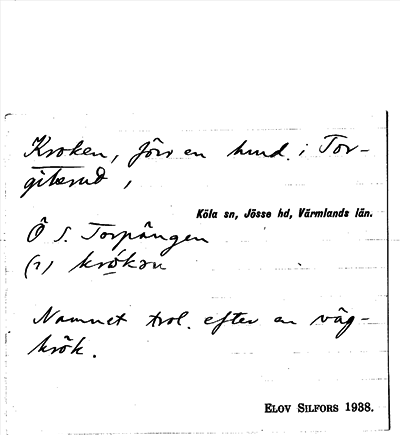 Kroken, förr en hmd. i Tor-
gilsrud,
Köla sn, Jösse hd, Värmlands län.
Ö S. Torpängen
(1) krókən
Namnet trol. efter en väg-
krök.
ELOV SILFORS 1938.